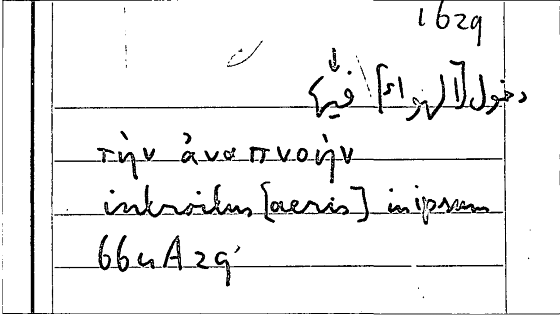 1629
دخول [الهواء] فيها
τὴν ἀναπνοὴν
introitus [aeris] in ipsam
664A29